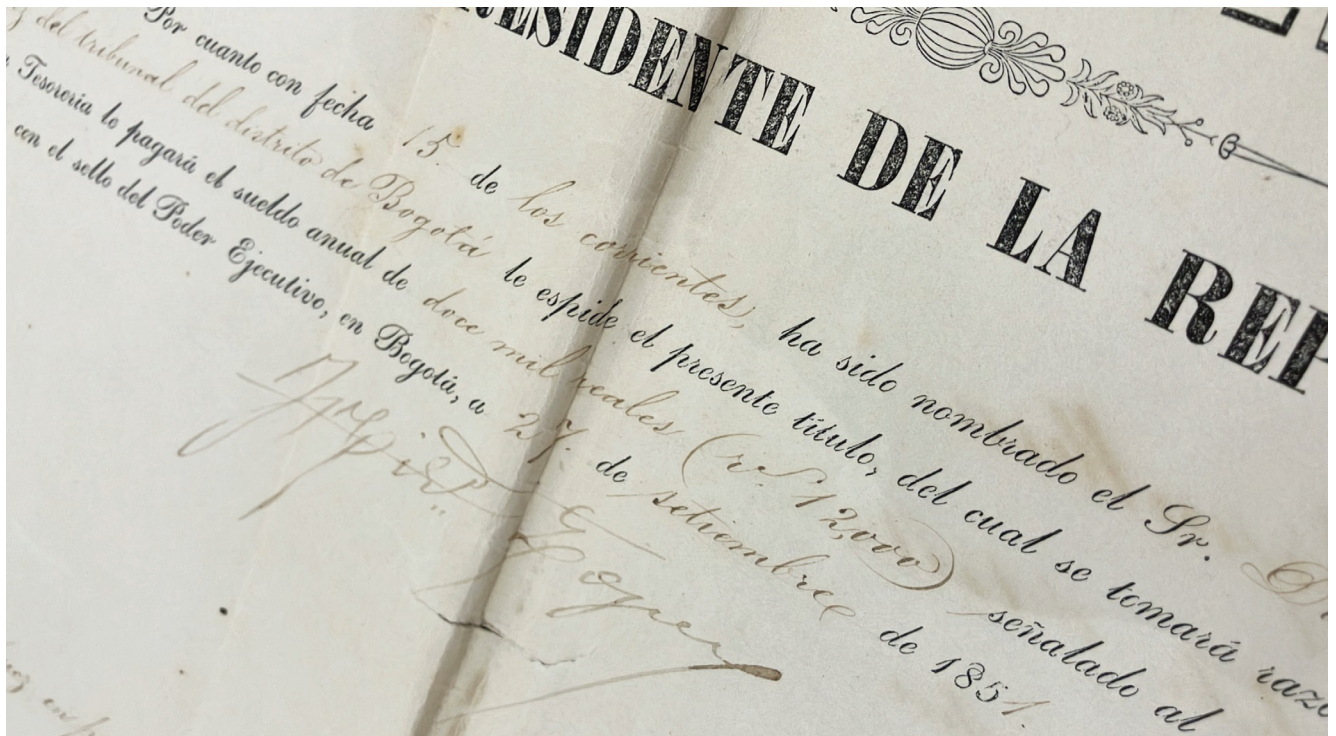 RESIDENTE DE LA REP
Por cuanto con fecha 15 de los corrientes, ha sido nombrado el Sr. D
del tribunal del distrito de Bogotá le espide el presente título, del cual se tomará razo
Tesorería lo pagará el sueldo anual de doce mil reales (rs. 12,000) señalado al
con el sello del Poder Ejecutivo, en Bogotá, a 27. de setiembre de 1851.
López